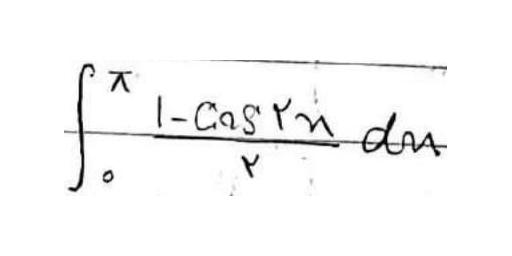 ∫₀^π (1-cos ۲x)/۲ dx